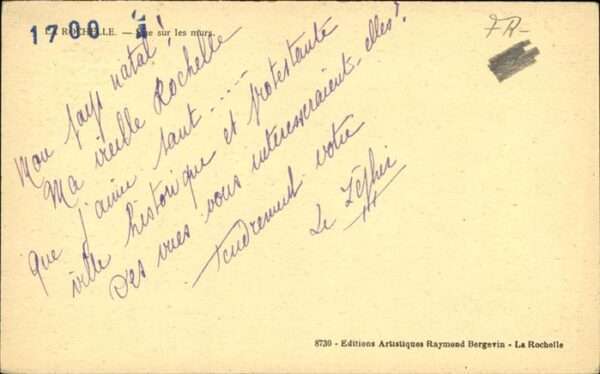 1700
LA ROCHELLE. - Vue sur les murs.
FR-
Mon pays natal!
Ma vieille Rochelle
que j'aime tant.....
ville historique et protestante
Des vues vous intéresseraient-elles?
Tendrement votre
Le Zéphir
8730 - Editions Artistiques Raymond Bergevin - La Rochelle